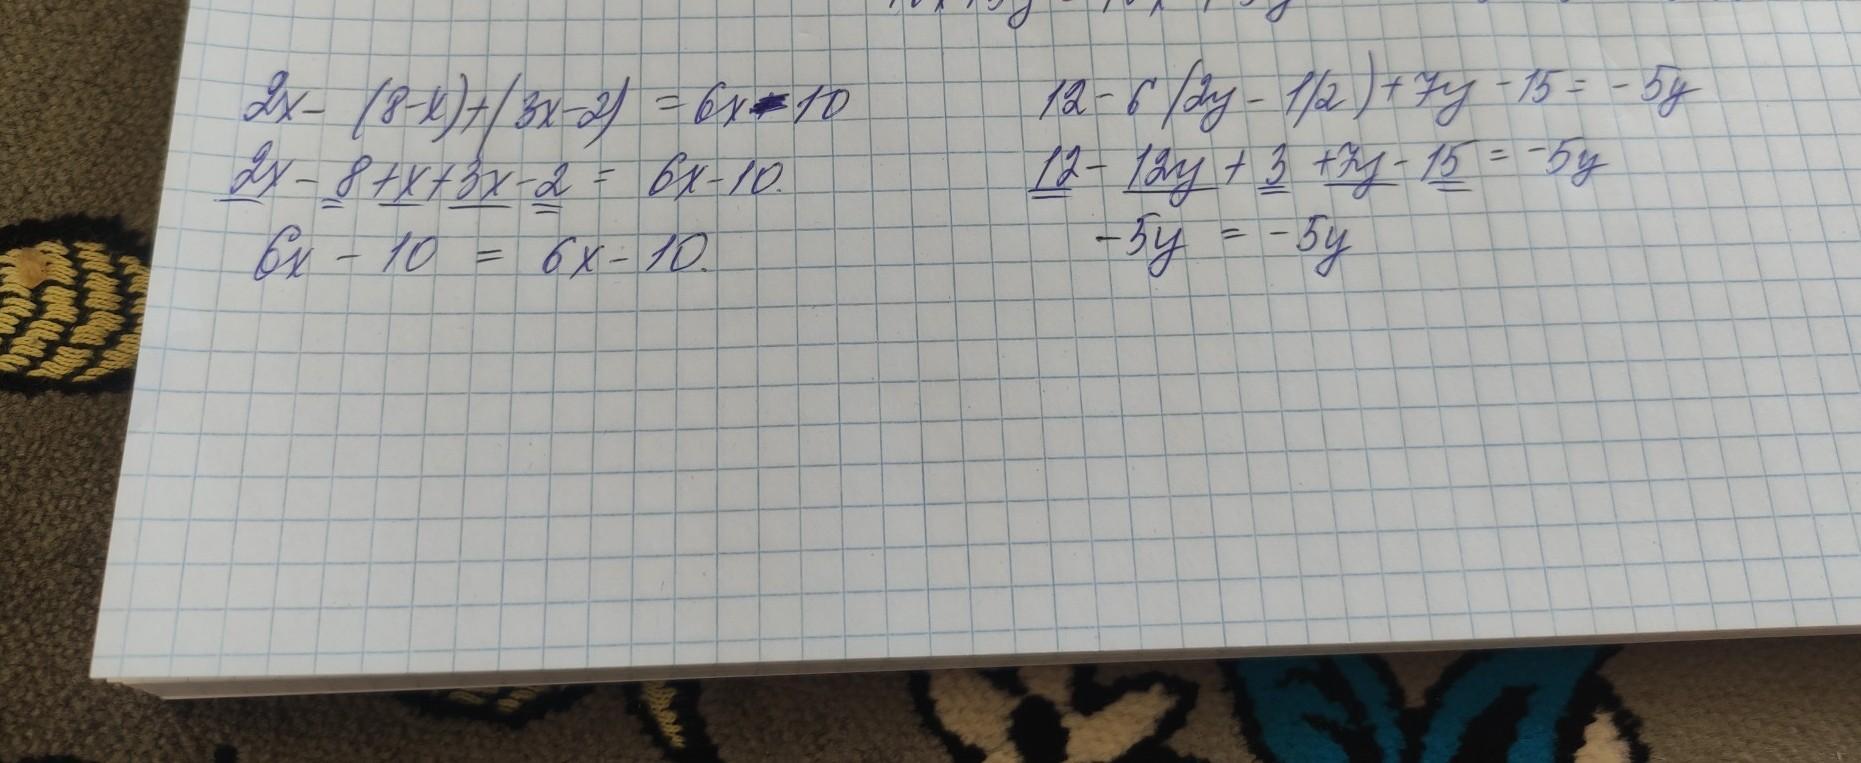 2x - (8-x)+(3x-2) = 6x-10
2x - 8+x+3x-2 = 6x-10.
6x - 10 = 6x-10.
12-6(2y-1/2)+7y-15=-5y
12-12y+3+7y-15=-5y
-5y = -5y